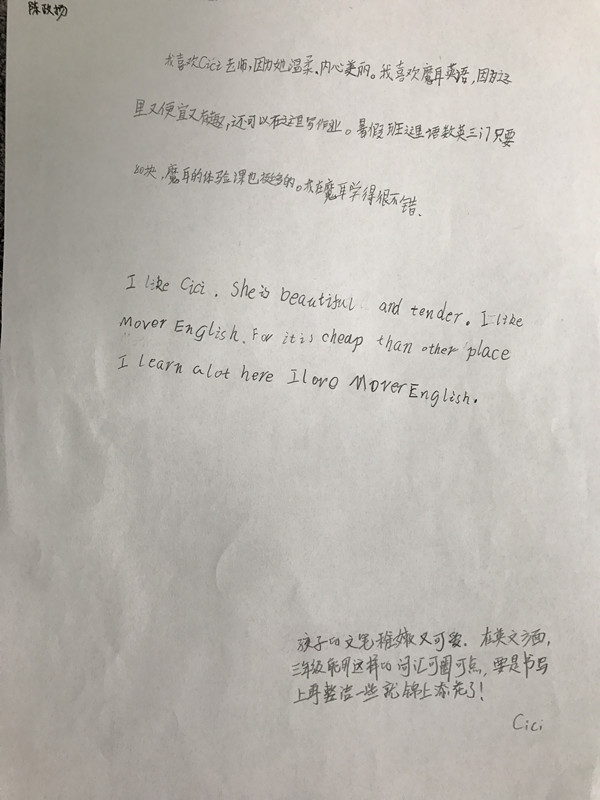 陈政扬
我喜欢Cici老师,因为她温柔、内心美丽。我喜欢魔耳英语,因为这
里又便宜又有趣,还可以在这里写作业。暑假班这里语数英三门只要
80块,魔耳的体验课也挺多的。我在魔耳学得很不错.
I like Cici. She is beautiful and tender. I like
Mover English. For it is cheap than other place
I learn alot here I love Mover English.
孩子的文笔稚嫩又可爱. 在英文方面,
三年级能用这样的词汇可圈可点, 要是书写
上再整洁一些就锦上添花了!
Cici